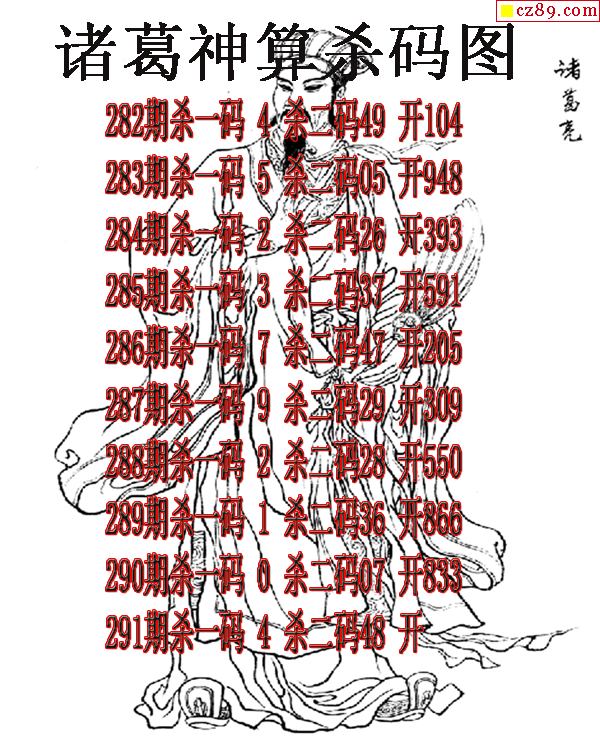 cz89.com
诸葛神算杀码图
诸葛亮
282期杀一码 4 杀二码49 开104
283期杀一码 5 杀二码05 开948
284期杀一码 2 杀二码26 开393
285期杀一码 3 杀二码37 开591
286期杀一码 7 杀二码47 开205
287期杀一码 9 杀二码29 开309
288期杀一码 2 杀二码28 开550
289期杀一码 1 杀二码36 开866
290期杀一码 0 杀二码07 开833
291期杀一码 4 杀二码48 开